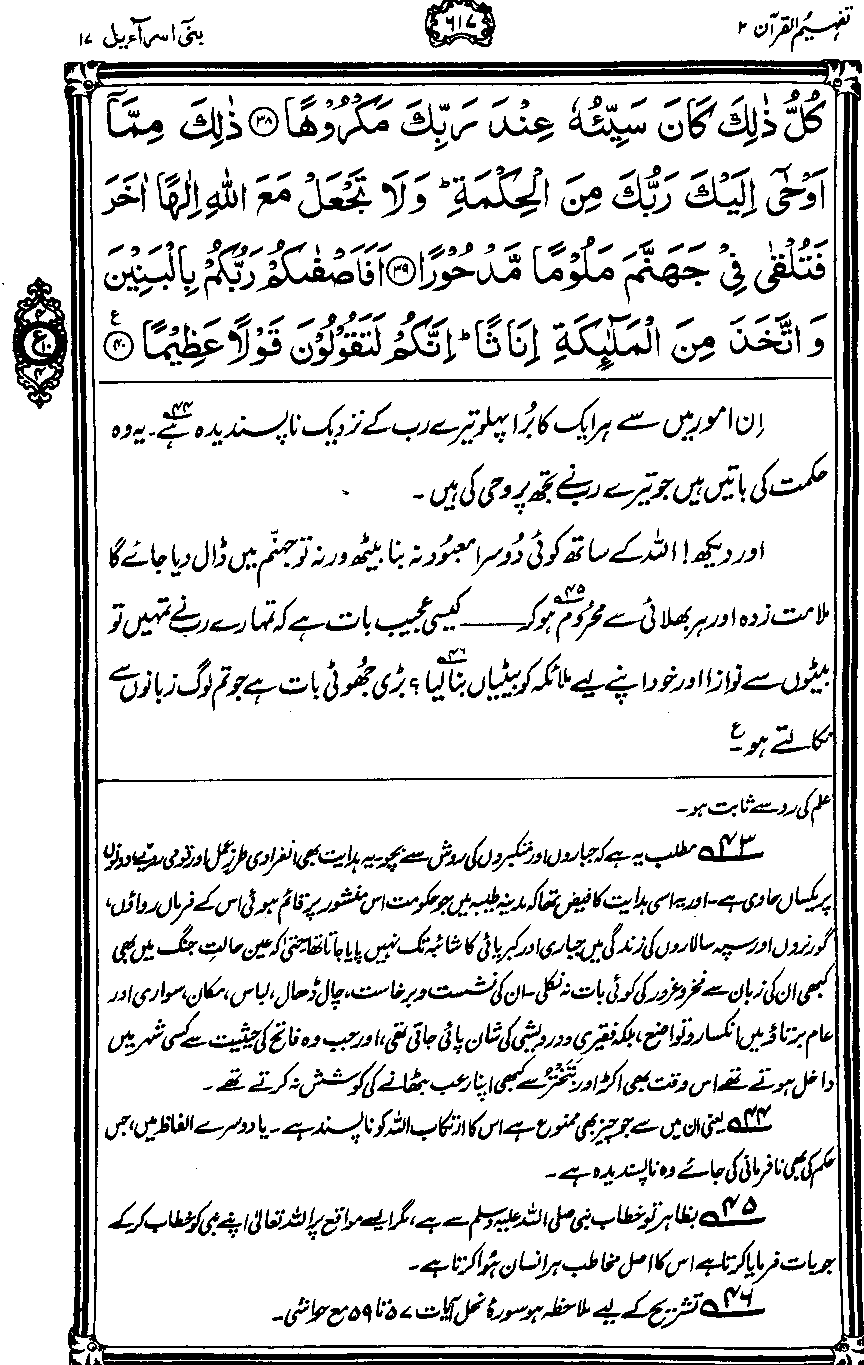 تفہیم القرآن ۲
۶۱۷
بنی اسرآءیل ۱۷
كُلُّ ذٰلِكَ كَانَ سَيِّئُهٗ عِنْدَ رَبِّكَ مَكْرُوْهًا ﴿۳۸﴾ ذٰلِكَ مِمَّاۤ
اَوْحٰۤى اِلَيْكَ رَبُّكَ مِنَ الْحِكْمَةِ ؕ وَلَا تَجْعَلْ مَعَ اللّٰهِ اِلٰهًا اٰخَرَ
فَتُلْقٰى فِيْ جَهَنَّمَ مَلُوْمًا مَّدْحُوْرًا ﴿۳۹﴾ اَفَاَصْفٰىكُمْ رَبُّكُمْ بِالْبَنِيْنَ
وَاتَّخَذَ مِنَ الْمَلٰٓىِٕكَةِ اِنَاثًا ؕ اِنَّكُمْ لَتَقُوْلُوْنَ قَوْلًا عَظِيْمًا ﴿۴۰﴾ ع
اِن امور میں سے ہر ایک کا بُرا پہلو تیرے رب کے نزدیک ناپسندیدہ ہے۴۴۔ یہ وہ
حکمت کی باتیں ہیں جو تیرے رب نے تجھ پر وحی کی ہیں۔
اور دیکھ! اللہ کے ساتھ کوئی دُوسرا معبُود نہ بنا بیٹھ ورنہ تو جہنّم میں ڈال دیا جائے گا
ملامت زدہ اور ہر بھلائی سے محرُوم ہو کر۴۵ــــــ کیسی عجیب بات ہے کہ تمہارے رب نے تمہیں تو
بیٹوں سے نوازا اور خود اپنے لیے ملائکہ کو بیٹیاں بنا لیا۴۶؟ بڑی جھُوٹی بات ہے جو تم لوگ زبانوں سے
نکالتے ہو۔ ع
علم کی رو سے ثابت ہو۔
۴۳ مطلب یہ ہے کہ جباروں اور متکبروں کی روش سے بچو۔ یہ ہدایت بھی انفرادی طرزِ عمل اور قومی رویے دونوں
پر یکساں حاوی ہے۔ اور یہ اسی ہدایت کا فیض تھا کہ مدینہ طیبہ میں جو حکومت اس منشور پر قائم ہوئی اس کے فرماں رواؤں،
گورنروں اور سپہ سالاروں کی زندگی میں جباری اور کبریائی کا شائبہ تک نہیں پایا جاتا تھا حتیٰ کہ عین حالتِ جنگ میں بھی
کبھی ان کی زبان سے فخر و غرور کی کوئی بات نہ نکلی۔ ان کی نشست و برخاست، چال ڈھال، لباس، مکان، سواری اور
عام برتاؤ میں انکسار و تواضع، بلکہ فقیری و درویشی کی شان پائی جاتی تھی، اور جب وہ فاتح کی حیثیت سے کسی شہر میں
داخل ہوتے تھے اس وقت بھی اکڑ اور تَبَختُر سے کبھی اپنا رعب بٹھانے کی کوشش نہ کرتے تھے۔
۴۴ یعنی ان میں سے جو چیز بھی ممنوع ہے اس کا ارتکاب اللہ کو ناپسند ہے۔ یا دوسرے الفاظ میں، جس
حکم کی بھی نافرمانی کی جائے وہ ناپسندیدہ ہے۔
۴۵ بظاہر تو خطاب نبی صلی اللہ علیہ وسلم سے ہے، مگر ایسے مواقع پر اللہ تعالیٰ اپنے نبی کو خطاب کر کے
جو بات فرمایا کرتا ہے اس کا اصل مخاطب ہر انسان ہُوا کرتا ہے۔
۴۶ تشریح کے لیے ملاحظہ ہو سورۂ نحل آیات ۵۷ تا ۵۹ مع حواشی۔